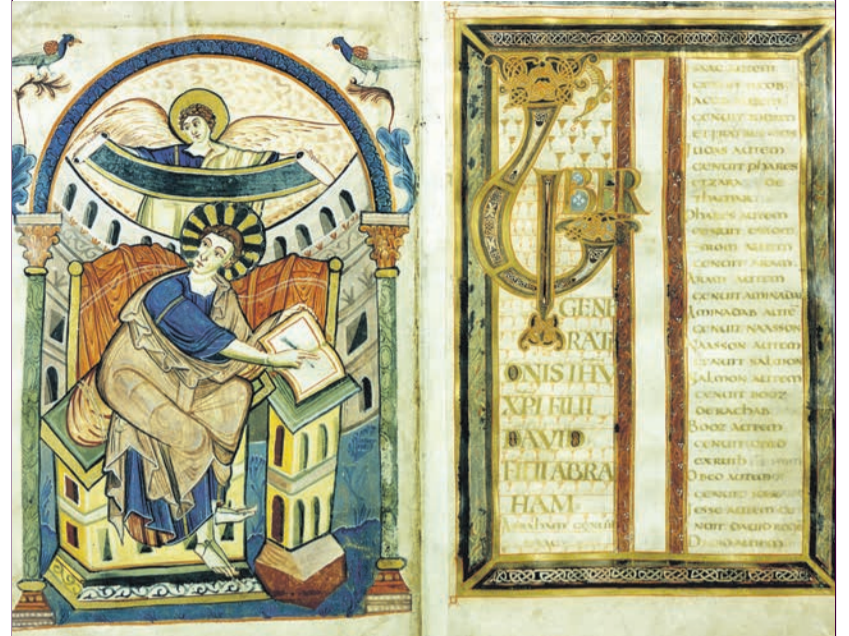 LIBER
GENE
RATI
ONIS IHU
XPI FILII
DAVID
FILII ABRA
HAM
Abraham genuit
isaac
isaac autem
genuit iacob
Jacob autem
genuit
et fratres eius
Judas autem
genuit phares
et zara de
thamar
Phares autem
genuit esrom
esrom autem
genuit aram
Aram autem
genuit aminadab
Aminadab autē
genuit naasson
Naasson autem
genuit salmon
Salmon autem
genuit booz
de rachab
Booz autem
genuit obed
ex ruth
Obed autem
genuit iesse
Jesse autem ge
nuit david
David autem